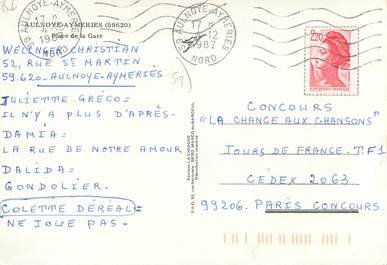 AULNOYE-AYMERIES (59620)
Place de la Gare
AULNOYE-AYMERIES
17 H
12
1987
NORD
AULNOYE-AYMERIES
17 H
-12
1987
NORD
2,20
WELINGER CHRISTIAN
52, RUE ST MARTIN
59.620-AULNOYE-AYMERIES
JULIETTE GRÉCO=
IL N'Y A PLUS D'APRÈS-
DAMIA=
LA RUE DE NOTRE AMOUR
DALIDA=
GONDOLIER.
COLETTE DÉRÉAL=
NE JOUE PAS-
CONCOURS
"LA CHANCE AUX CHANSONS"
TOURS DE FRANCE-T.F1
CÉDEX 2063
99206- PARIS CONCOURS.